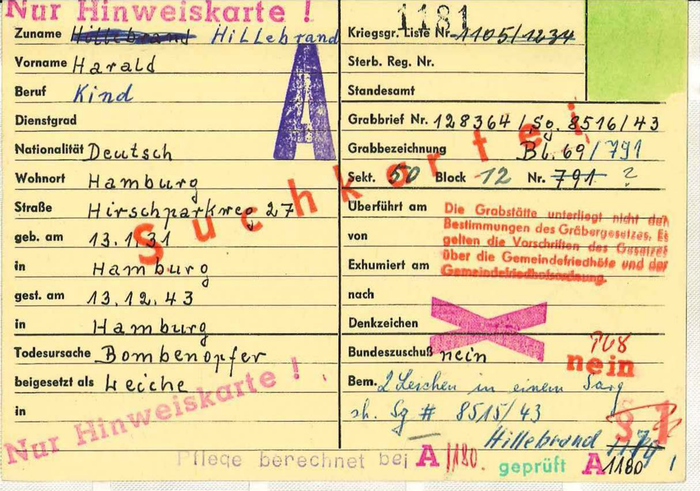 Nur Hinweiskarte !
1181
Zuname Hillebrand Hillebrand
Vorname Harald
Beruf Kind
Dienstgrad
Nationalität Deutsch
Wohnort Hamburg
Straße Hirschparkweg 27
geb. am 13.1.31
in Hamburg
gest. am 13.12.43
in Hamburg
Todesursache Bombenopfer
beigesetzt als Leiche
in
Nur Hinweiskarte !
A
Suchkartei
Kriegsgr. Liste Nr. 1105/1234
Sterb. Reg. Nr.
Standesamt
Grabbrief Nr. 128364/Sg. 8516/43
Grabbezeichnung Bl. 69/791
Sekt. 50 Block 12 Nr. 791 ?
Überführt am
von
Exhumiert am
nach
Die Grabstätte unterliegt nicht den
Bestimmungen des Gräbergesetzes. Es
gelten die Vorschriften des Gesetzes
über die Gemeindefriedhöfe und der
Gemeindefriedhofsordnung.
Denkzeichen
Bundeszuschuß nein
nein
Bem. 2 Leichen in einem Sarg
sh. Sg # 8515/43
Hillebrand
§ 1
Pflege berechnet bei A/1180. geprüft A 1180